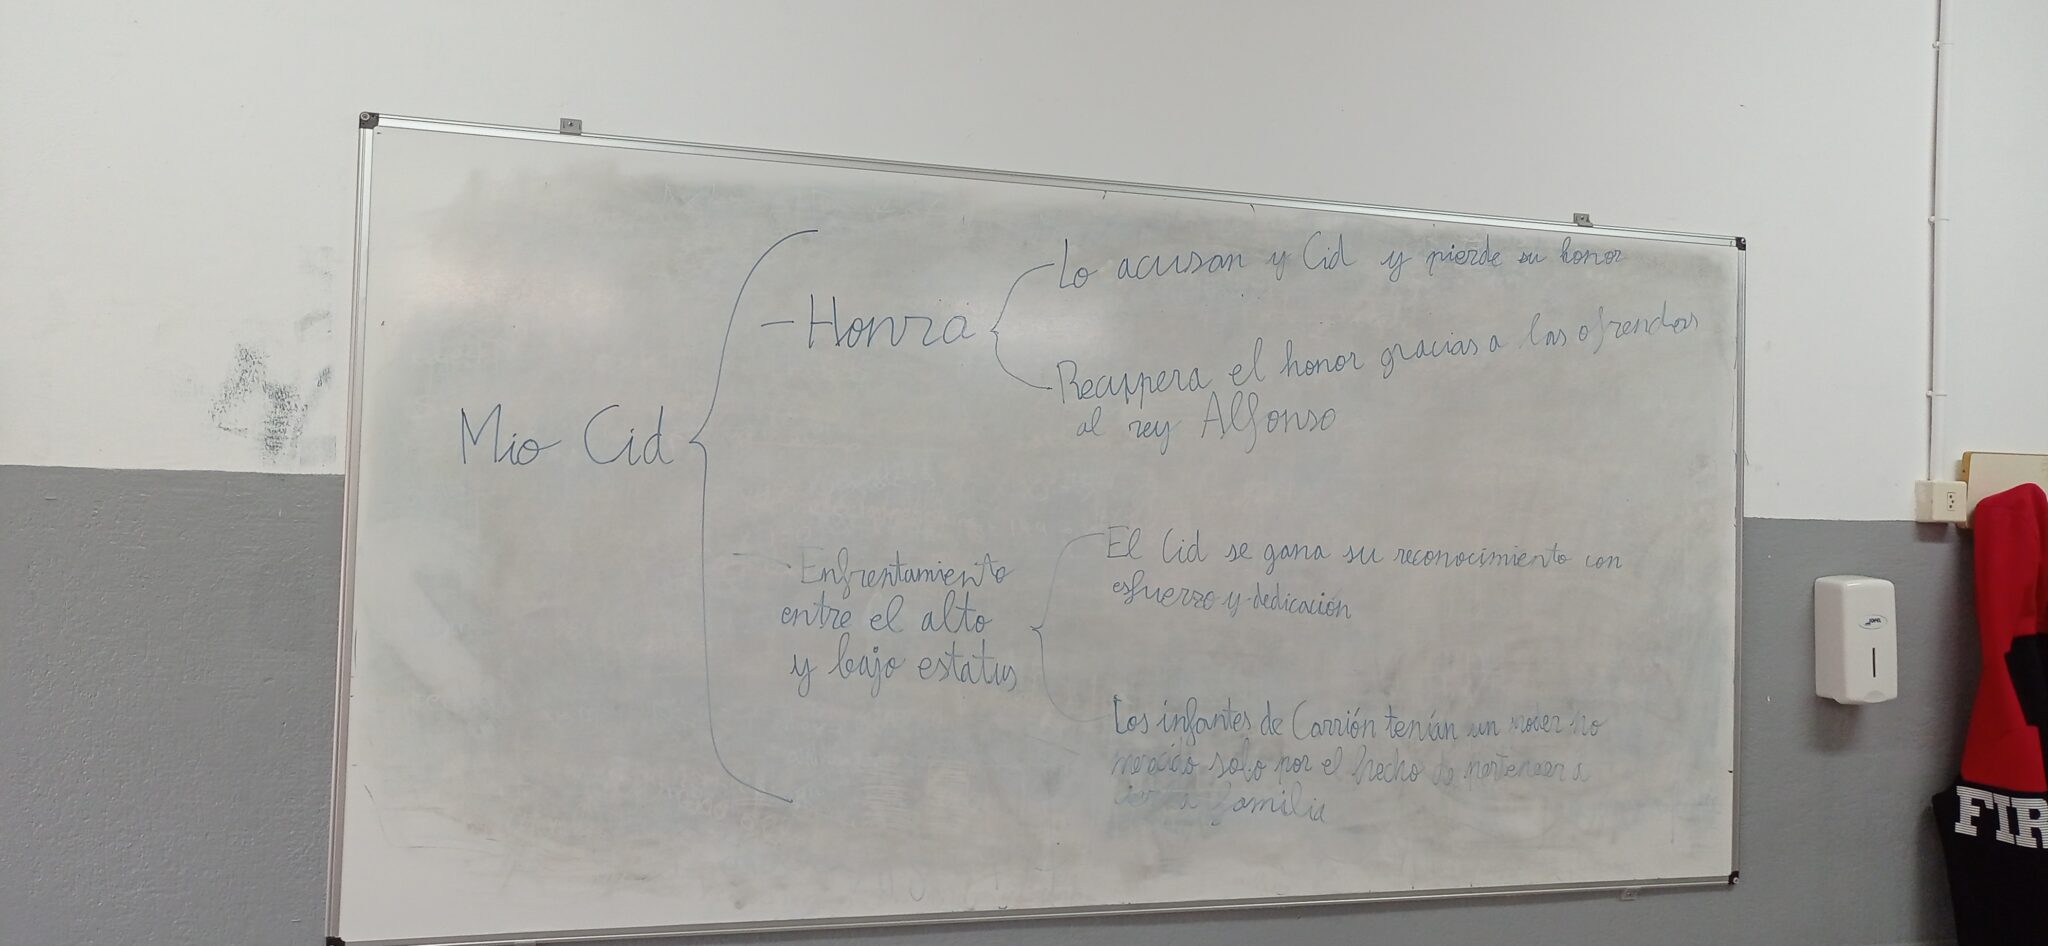 Mio Cid
- Honra
Lo acusan y Cid y pierde su honor
Recupera el honor gracias a las ofrendas
al rey Alfonso
Enfrentamiento
entre el alto
y bajo estatus
El Cid se gana su reconocimiento con
esfuerzo y dedicación
Los infantes de Carrión tenían un poder no
merecido solo por el hecho de pertenecer a
cierta familia
FIR